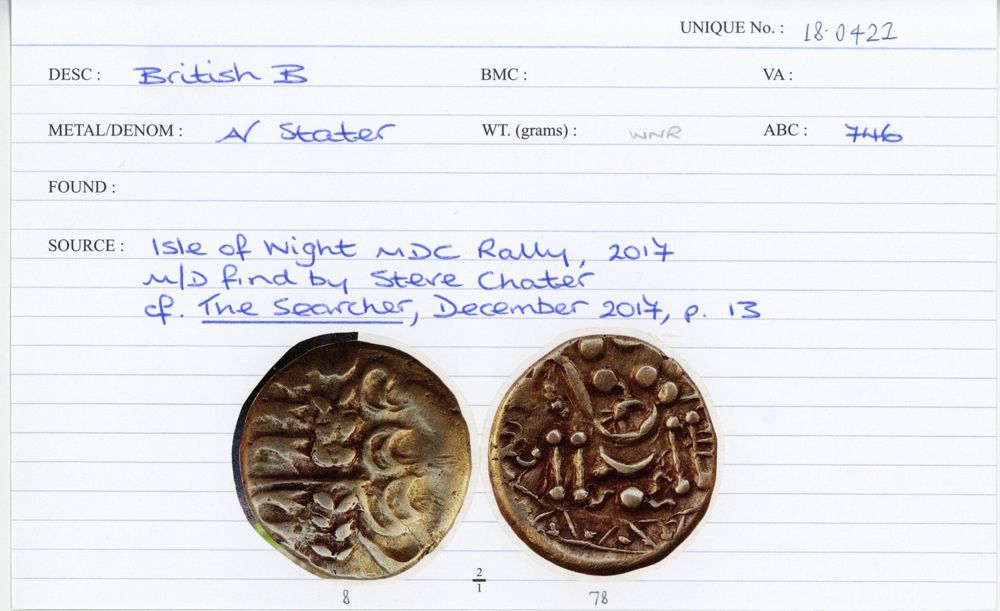 UNIQUE No. : 18.0422
DESC : British B BMC : VA :
METAL/DENOM : AV Stater WT. (grams) : WNR ABC : 746
FOUND :
SOURCE : Isle of Wight MDC Rally, 2017
M/D find by Steve Chater
cf. The Searcher, December 2017, p. 13
2
1
8 78